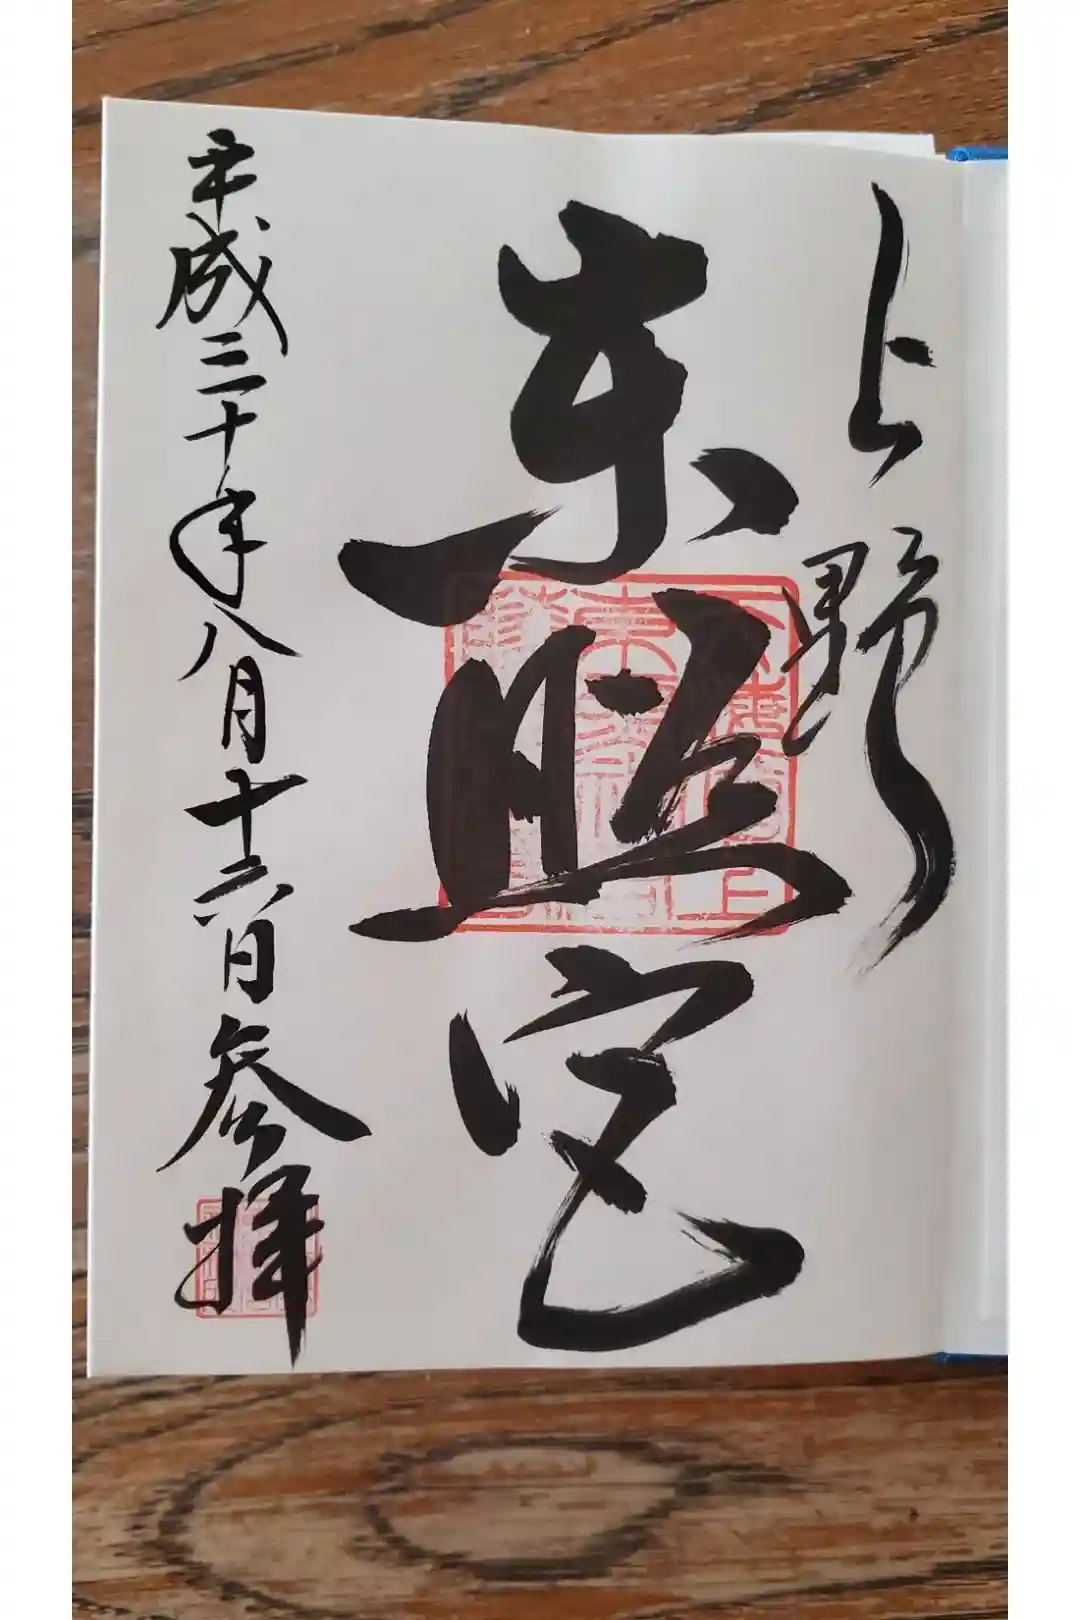 上野
東照宮
平成三十年八月十六日参拝